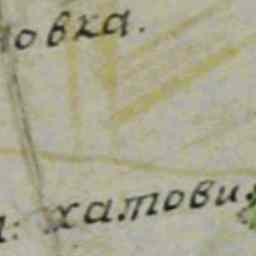 овка.
: хатови